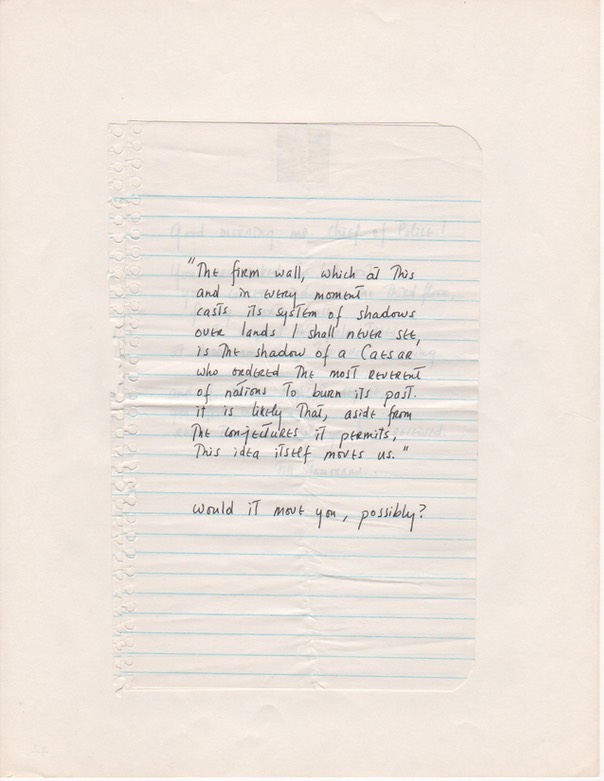 Good morning chief of Police!
"The firm wall, which at this
and in every moment
casts its system of shadows
over lands I shall never see,
is the shadow of a Caesar
who ordered the most reverent
of nations to burn its past.
it is likely that, aside from
the conjectures it permits,
this idea itself moves us."
would it move you, possibly?